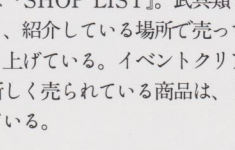 『SHOP LIST』。武具類
、紹介している場所で売っ
上げている。イベントクリア
新しく売られている商品は、
ている。